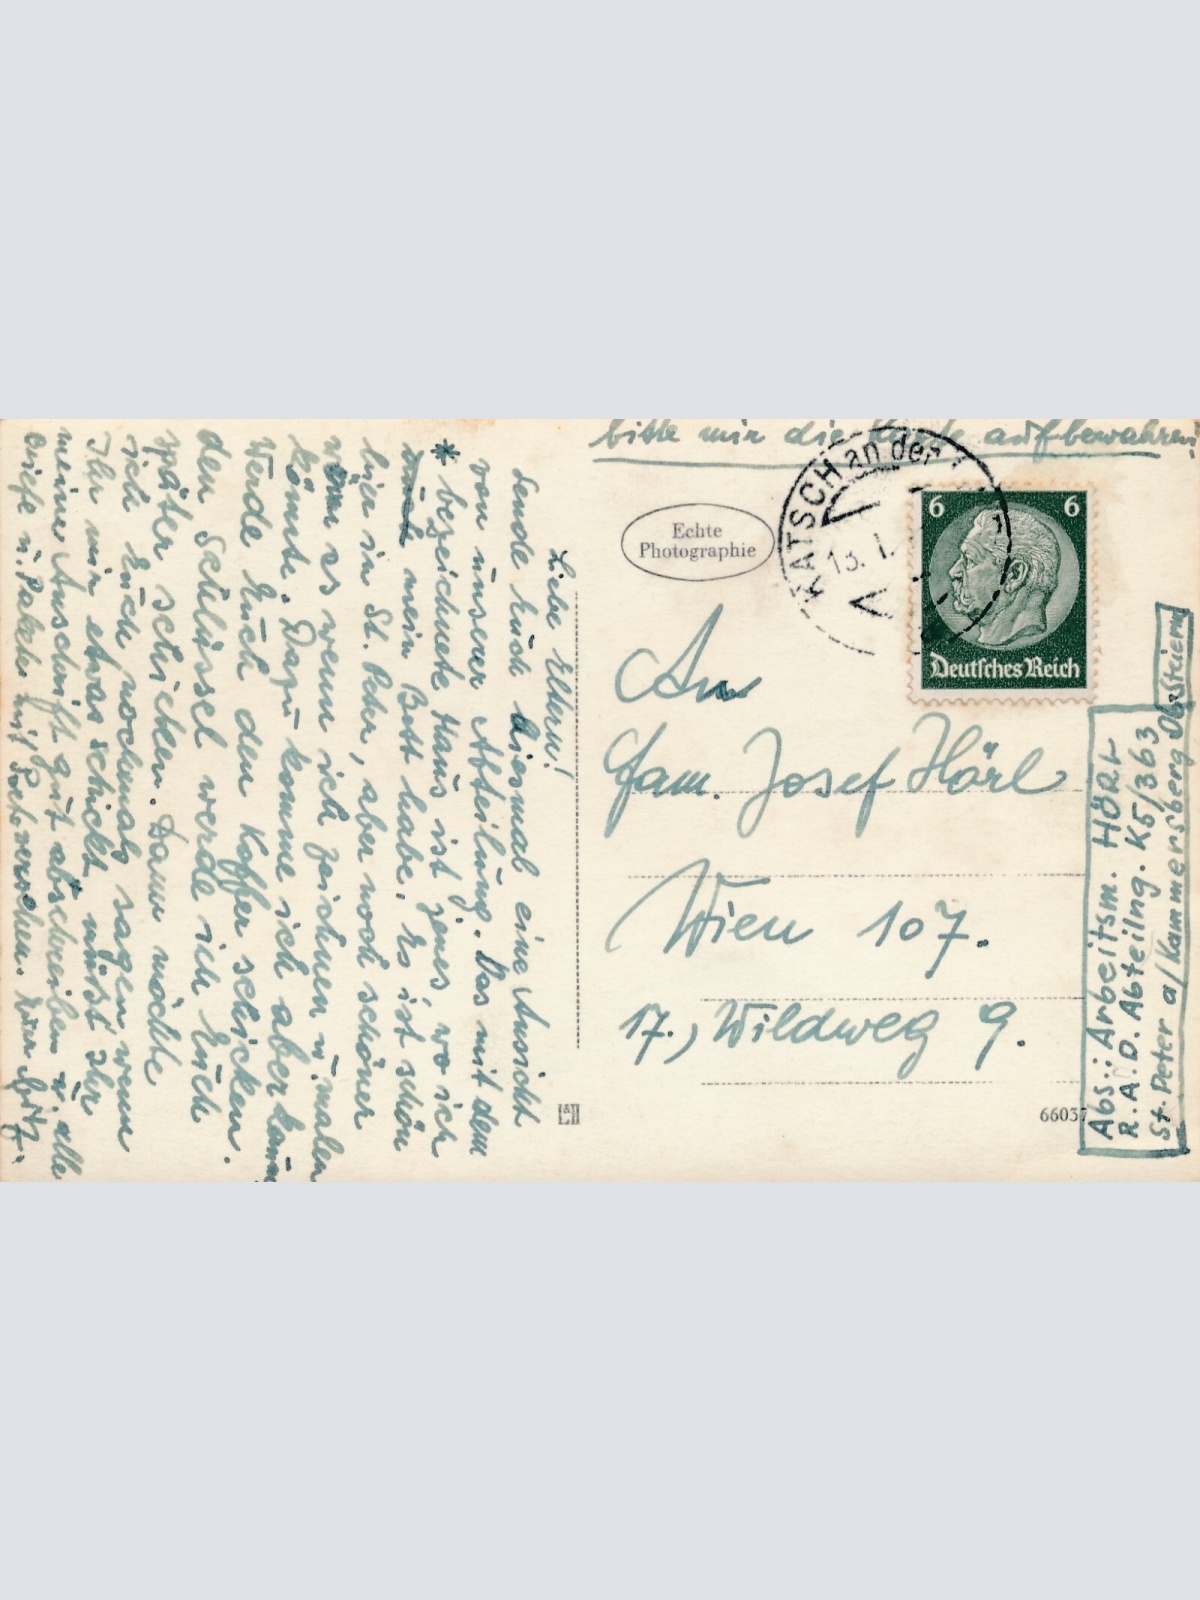 bitte mir die Karte aufbewahren!
Echte
Photographie
KATSCH an der
13. I.
6 6
Deutsches Reich
An
Fam. Josef Hörl
Wien 107.
17., Wildweg 9.
66037
Abs.: Arbeitsm. HÖRL
R.A.D. Abteilng. K5/363
St. Peter a/Kammersberg Obersteierm
Liebe Eltern!
Sende Euch diesmal eine Ansicht
von unserer Abteilung. Das mit dem
* bezeichnete Haus ist jenes, wo ich
mein Bett habe. Es ist schön
hier in St. Peter, aber noch schöner
wär es wenn ich zeichnen u. malen
könnte. Dazu komme ich aber kaum
Werde Euch den Koffer schicken.
den Schlüssel werde ich Euch
später schicken. Dann möchte
ich Euch nochmals sagen wenn
Ihr mir etwas schickt müsst Ihr
meine Anschrift gut abschreiben u. alle
Briefe u. Pakete mit versehen. Euer